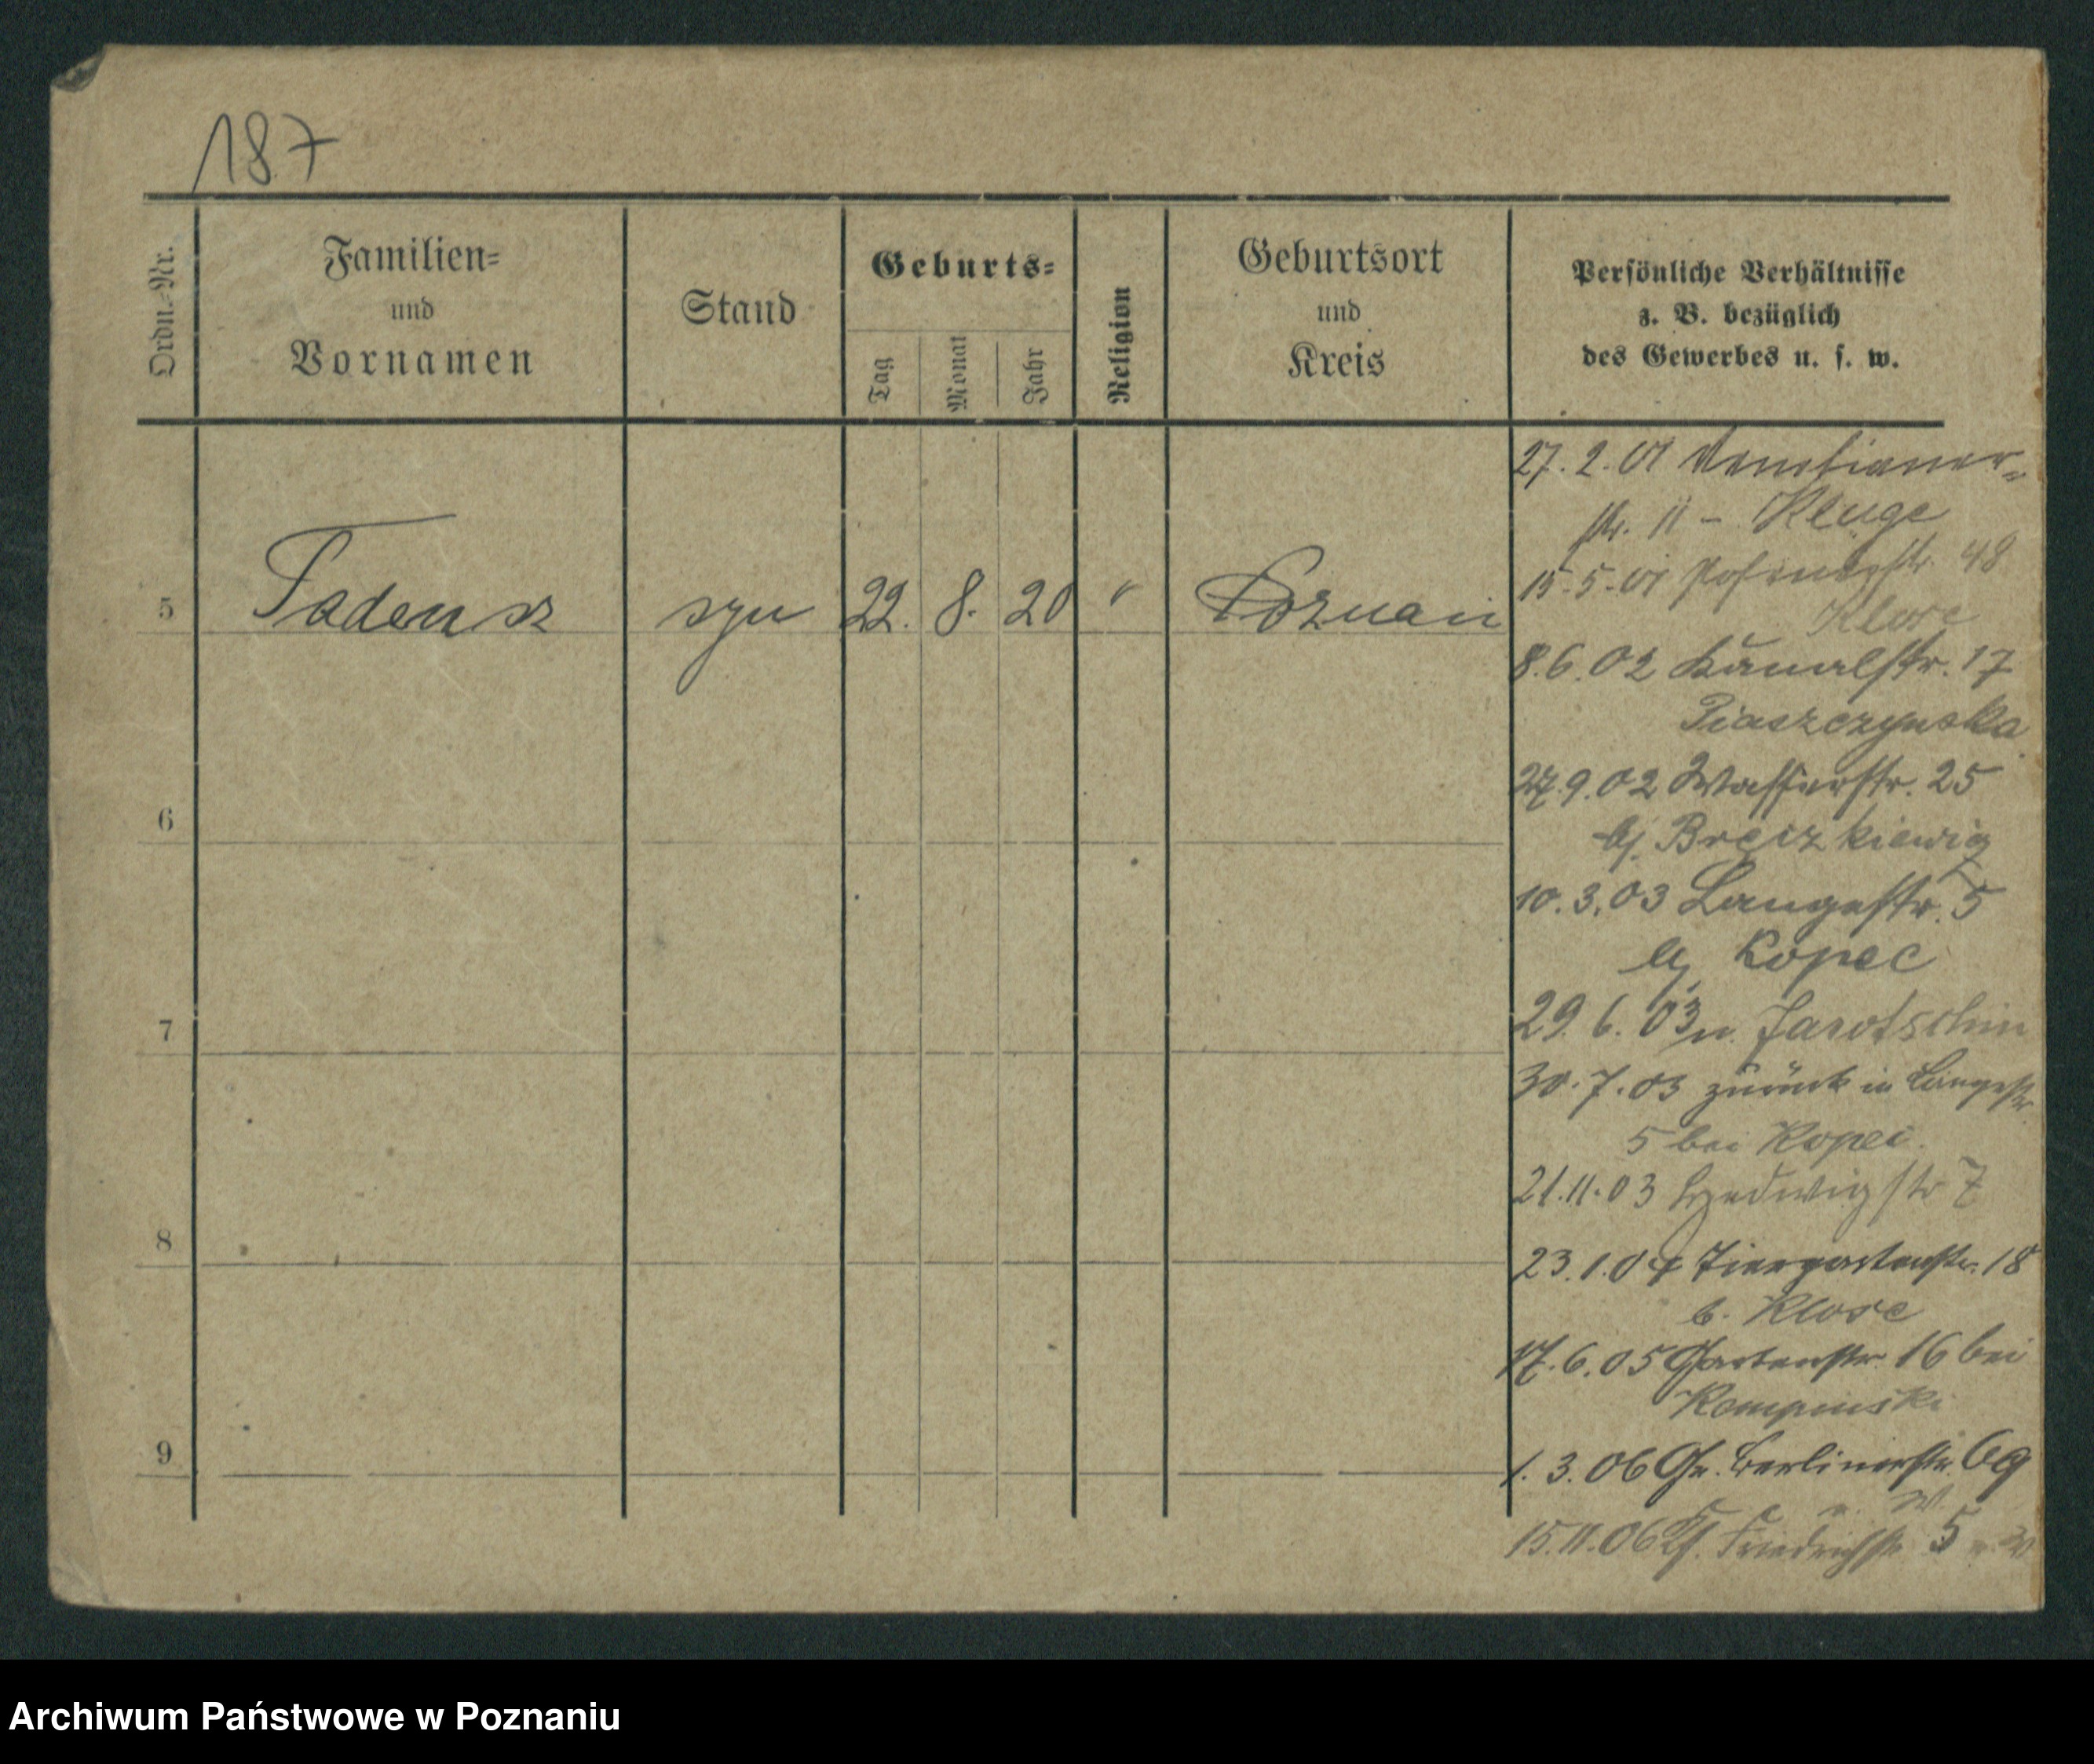 187
Ordn.-Nr.
Familien-
und
Vornamen
Stand
Geburts-
Tag
Monat
Jahr
Religion
Geburtsort
und
Kreis
Persönliche Verhältnisse
z. B. bezüglich
des Gewerbes u. s. w.
5 Tadeusz syn 22. 8. 20 " Poznań
6
7
8
9
27. 2. 01 Venetianer-
str. 11 - Kluge
15. 5. 01 Posenerstr. 48
Klose
8. 6. 02 Kanalstr. 17
Piaszczynska
27. 9. 02 Wasserstr. 25
bei
10. 3. 03 Langestr. 5
bei Kopec
29. 6. 03 n. Jarotschin
30. 7. 03 zurück in Langestr
5 bei Kopec.
21. 11. 03 Hedwigstr 7
23. 1. 04 Tiergartenstr. 18
b. Klose
17. 6. 05 Gartenstr. 16 bei
Kempinski
1. 3. 06 Gr. Berlinerstr. 69
15. 11. 06 Friedrichstr. 5
Archiwum Państwowe w Poznaniu